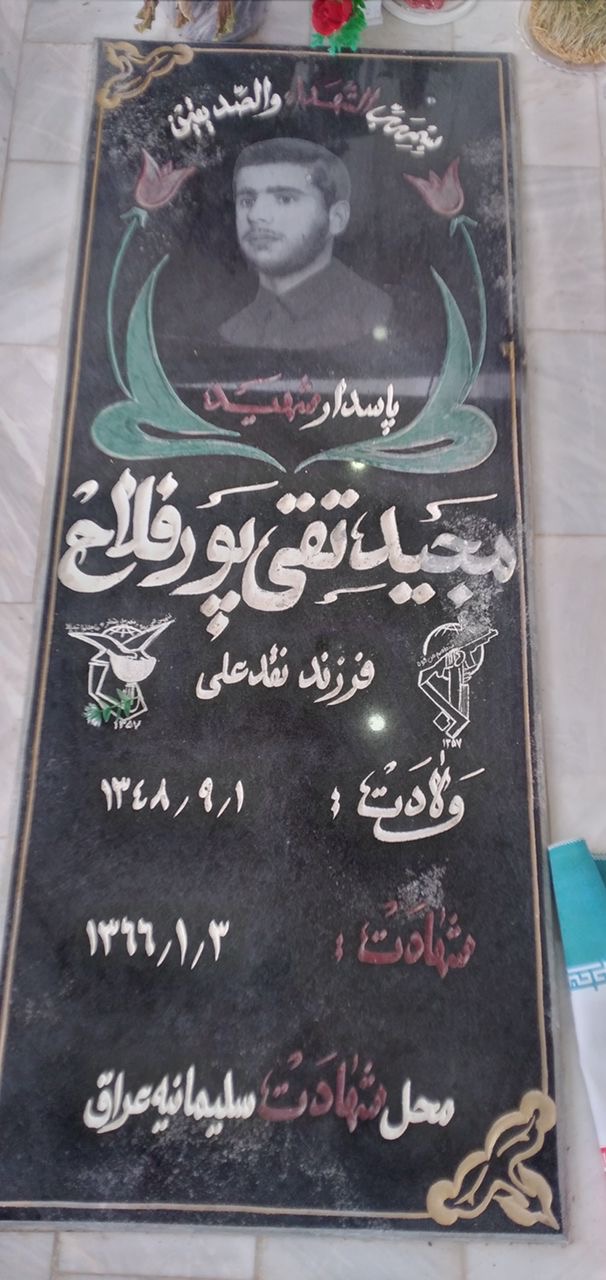 بسم رب الشهداء والصدیقین
پاسدار شهید
مجید تقی پور فلاح
فرزند نقدعلی
۱۳۵۷
۱۳۵۷
ولادت : ۱۳۴۸٫۹٫۱
شهادت : ۱۳۶۶٫۱٫۳
محل شهادت سلیمانیه عراق